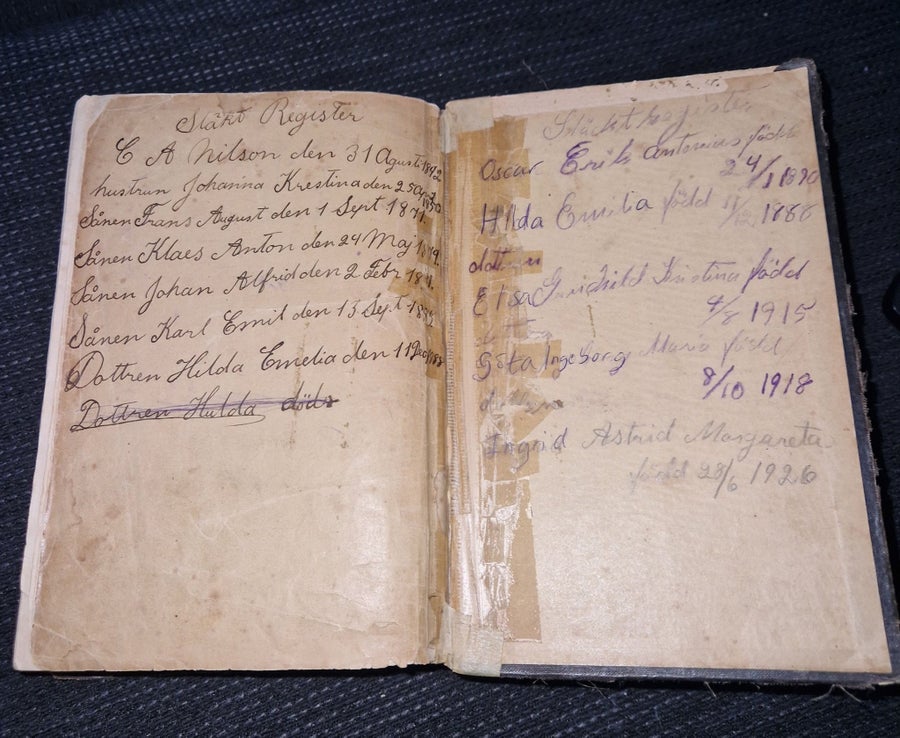 Släkt Register
C A Nilson den 31 Agusti 1842
hustrun Johanna Krestina den 25 1850
Sånen Frans August den 1 Sept 1871.
Sånen Klaes Anton den 24 Maj
Sånen Johan Alfrid den 2 Febr
Sånen Karl Emil den 13 Sept
Dottren Hilda Emelia den 11 1888
Dottren Hulda döds
Släcktregister
Oscar Erik Antonius född
24/1 1890
Hilda Emilia född 11/12 1888
dottren
Elsa Gunhild Kristina född
4/8 1915
Göta Ingeborg Maria född
8/10 1918
dottren
Ingrid Astrid Margareta
född 28/6 1926